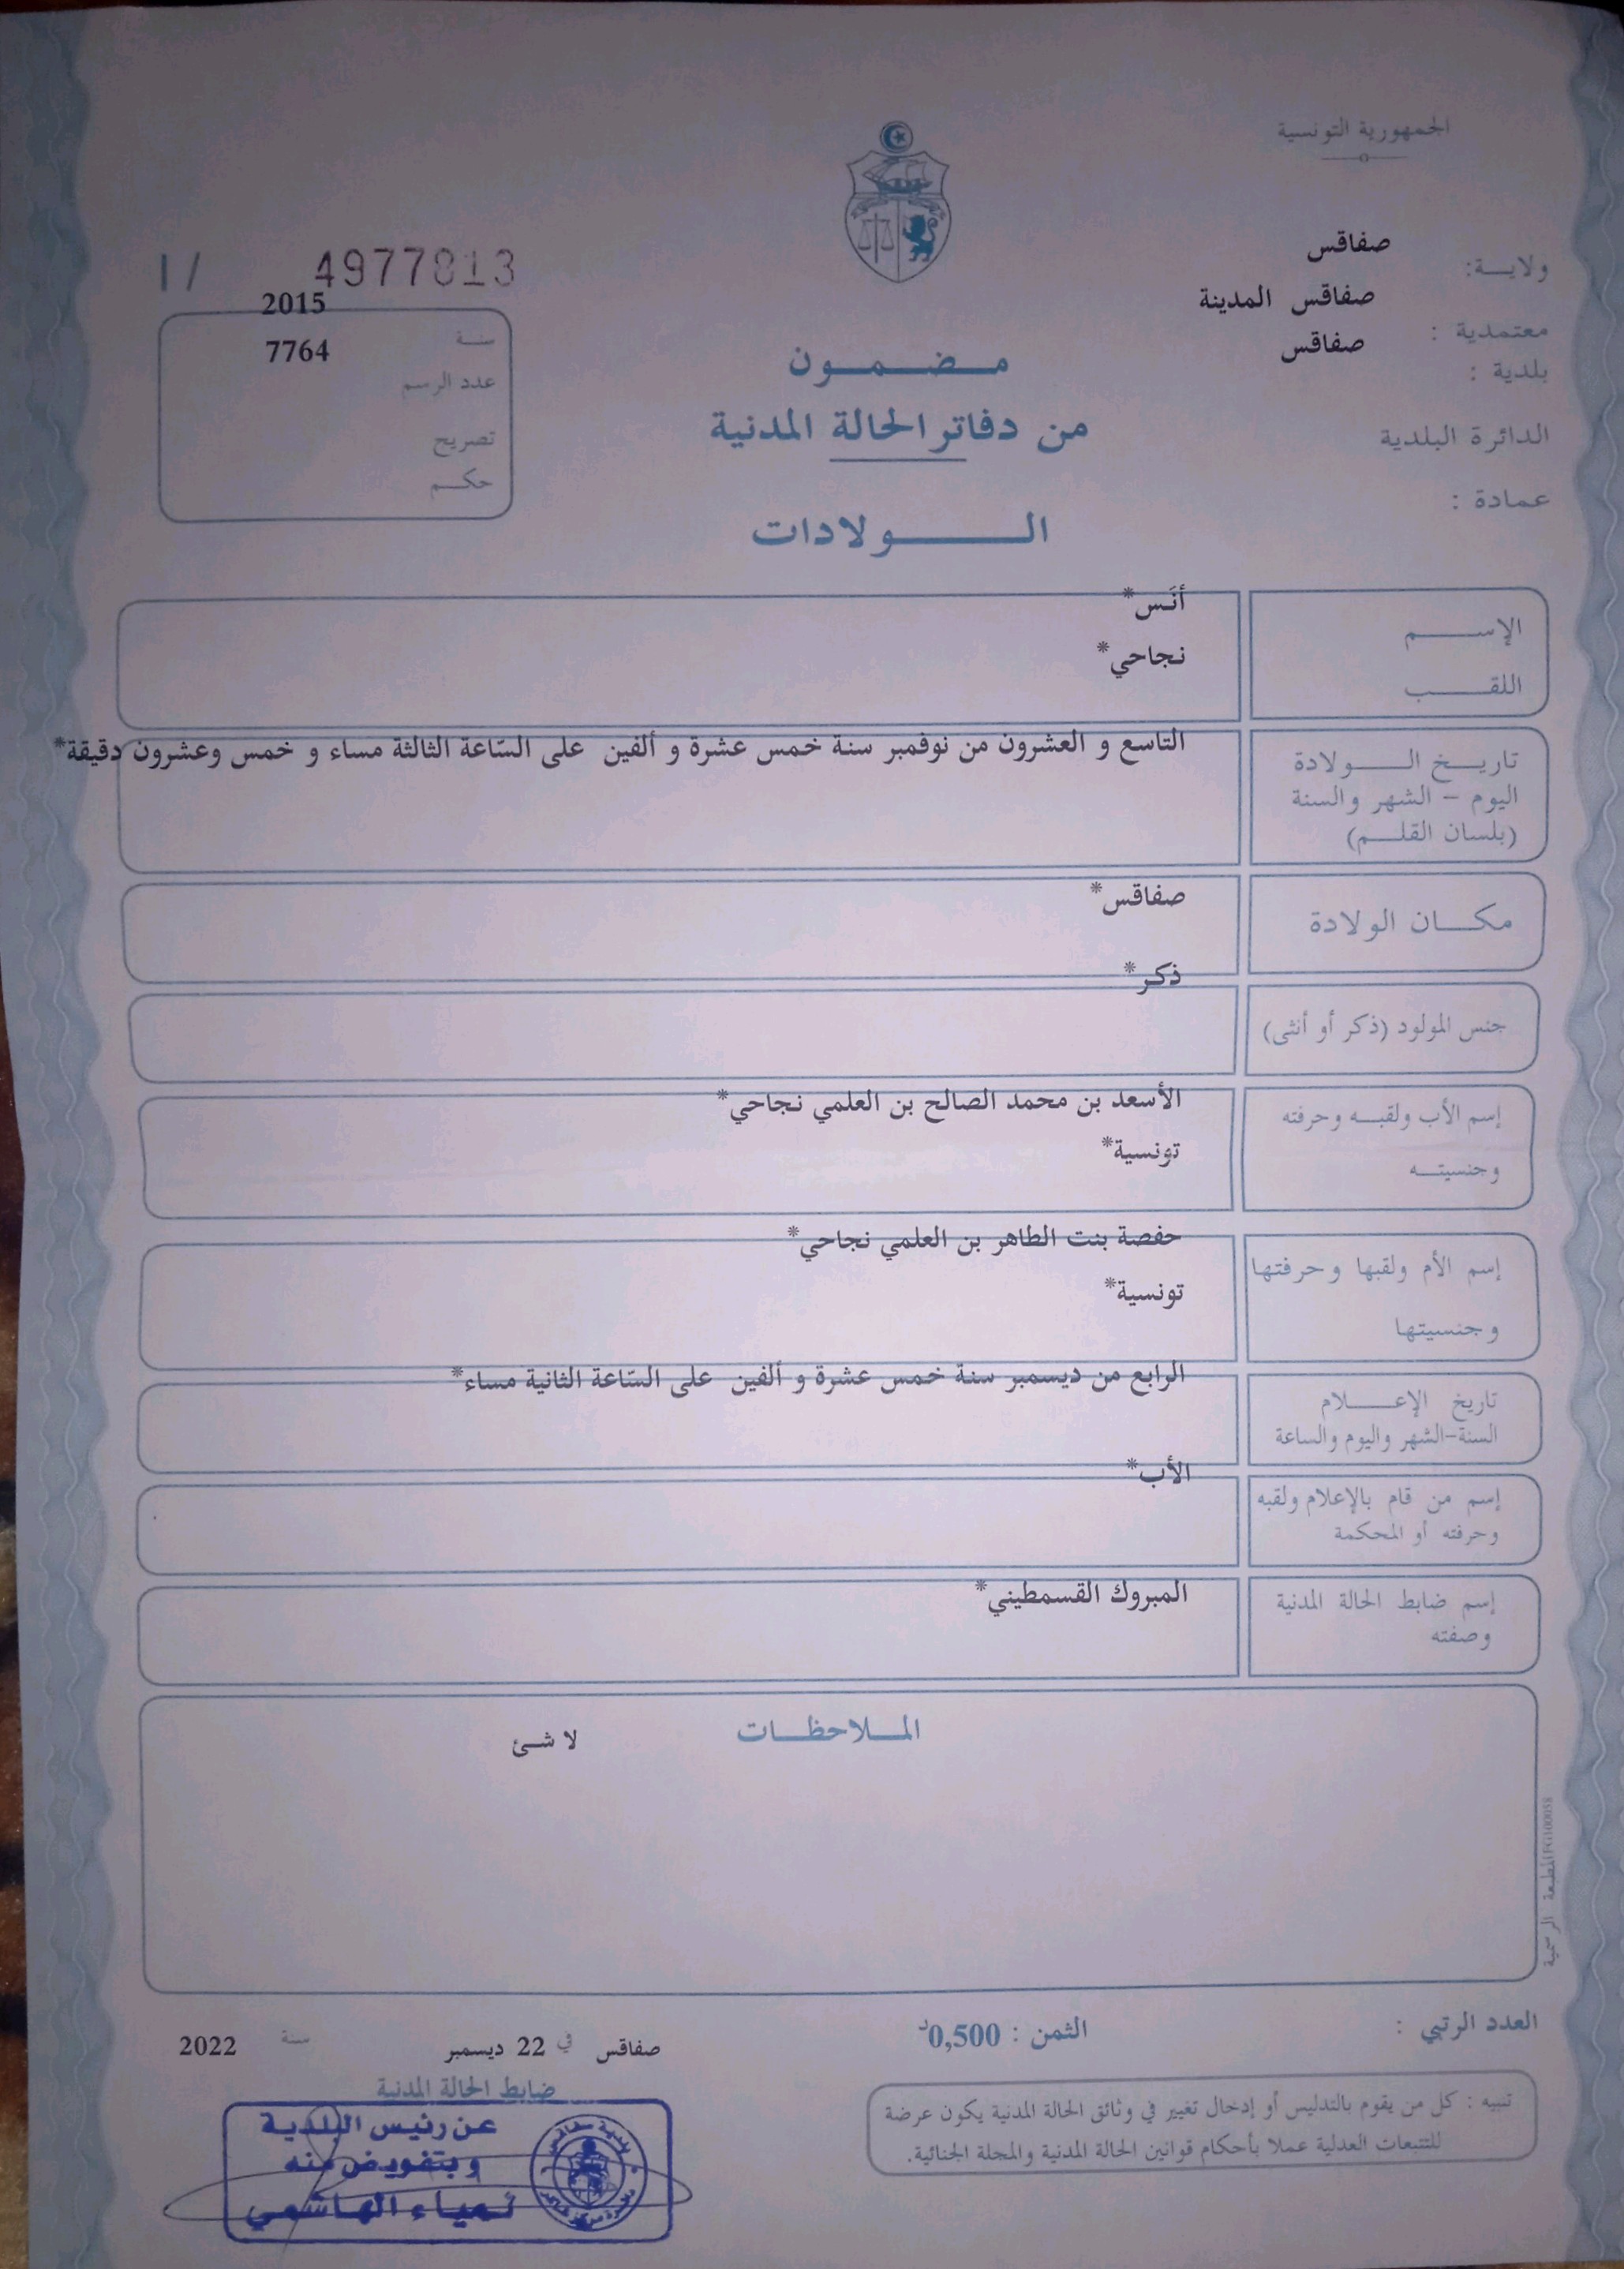 الجمهورية التونسية
ولاية: صفاقس
معتمدية : صفاقس المدينة
بلدية : صفاقس
الدائرة البلدية
عمادة :
مضمون
من دفاتر الحالة المدنية
الولادات
I / 4977813
سنة 2015
عدد الرسم 7764
تصريح
حكم
الإسم أنَس*
اللقب نجاحي*
تاريخ الولادة
اليوم - الشهر والسنة
(بلسان القلم)
التاسع و العشرون من نوفمبر سنة خمس عشرة و ألفين على السّاعة الثالثة مساء و خمس وعشرون دقيقة*
مكان الولادة صفاقس*
جنس المولود (ذكر أو أنثى) ذكر*
إسم الأب ولقبه وحرفته الأسعد بن محمد الصالح بن العلمي نجاحي*
وجنسيته تونسية*
إسم الأم ولقبها وحرفتها حفصة بنت الطاهر بن العلمي نجاحي*
وجنسيتها تونسية*
تاريخ الإعلام
السنة-الشهر واليوم والساعة
الرابع من ديسمبر سنة خمس عشرة و ألفين على السّاعة الثانية مساء*
إسم من قام بالإعلام ولقبه
وحرفته أو المحكمة
الأب*
إسم ضابط الحالة المدنية
وصفته
المبروك القسمطيني*
الملاحظات
لا شئ
العدد الرتبي :
الثمن : 0,500د
صفاقس في 22 ديسمبر سنة 2022
ضابط الحالة المدنية
تنبيه : كل من يقوم بالتدليس أو إدخال تغيير في وثائق الحالة المدنية يكون عرضة
للتتبعات العدلية عملا بأحكام قوانين الحالة المدنية والمجلة الجنائية.
عن رئيس البلدية
وبتفويض منه
لمياء الهاشمي
بلدية صفاقس
المطبعة الرسمية